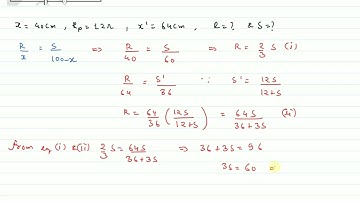 x = 40cm , Rp = 12Ω , x' = 64cm , R = ? & S = ?
R/x = S/100-x ⇒ R/40 = S/60 ⇒ R = 2/3 S (i)
R/64 = S'/36 ∵ S' = 12S/12+S
R = 64/36 (12S/12+S) = 64S/36+3S (ii)
from eq (i) & (ii) 2/3 S = 64S/36+3S ⇒ 36+3S = 96
3S = 60 =